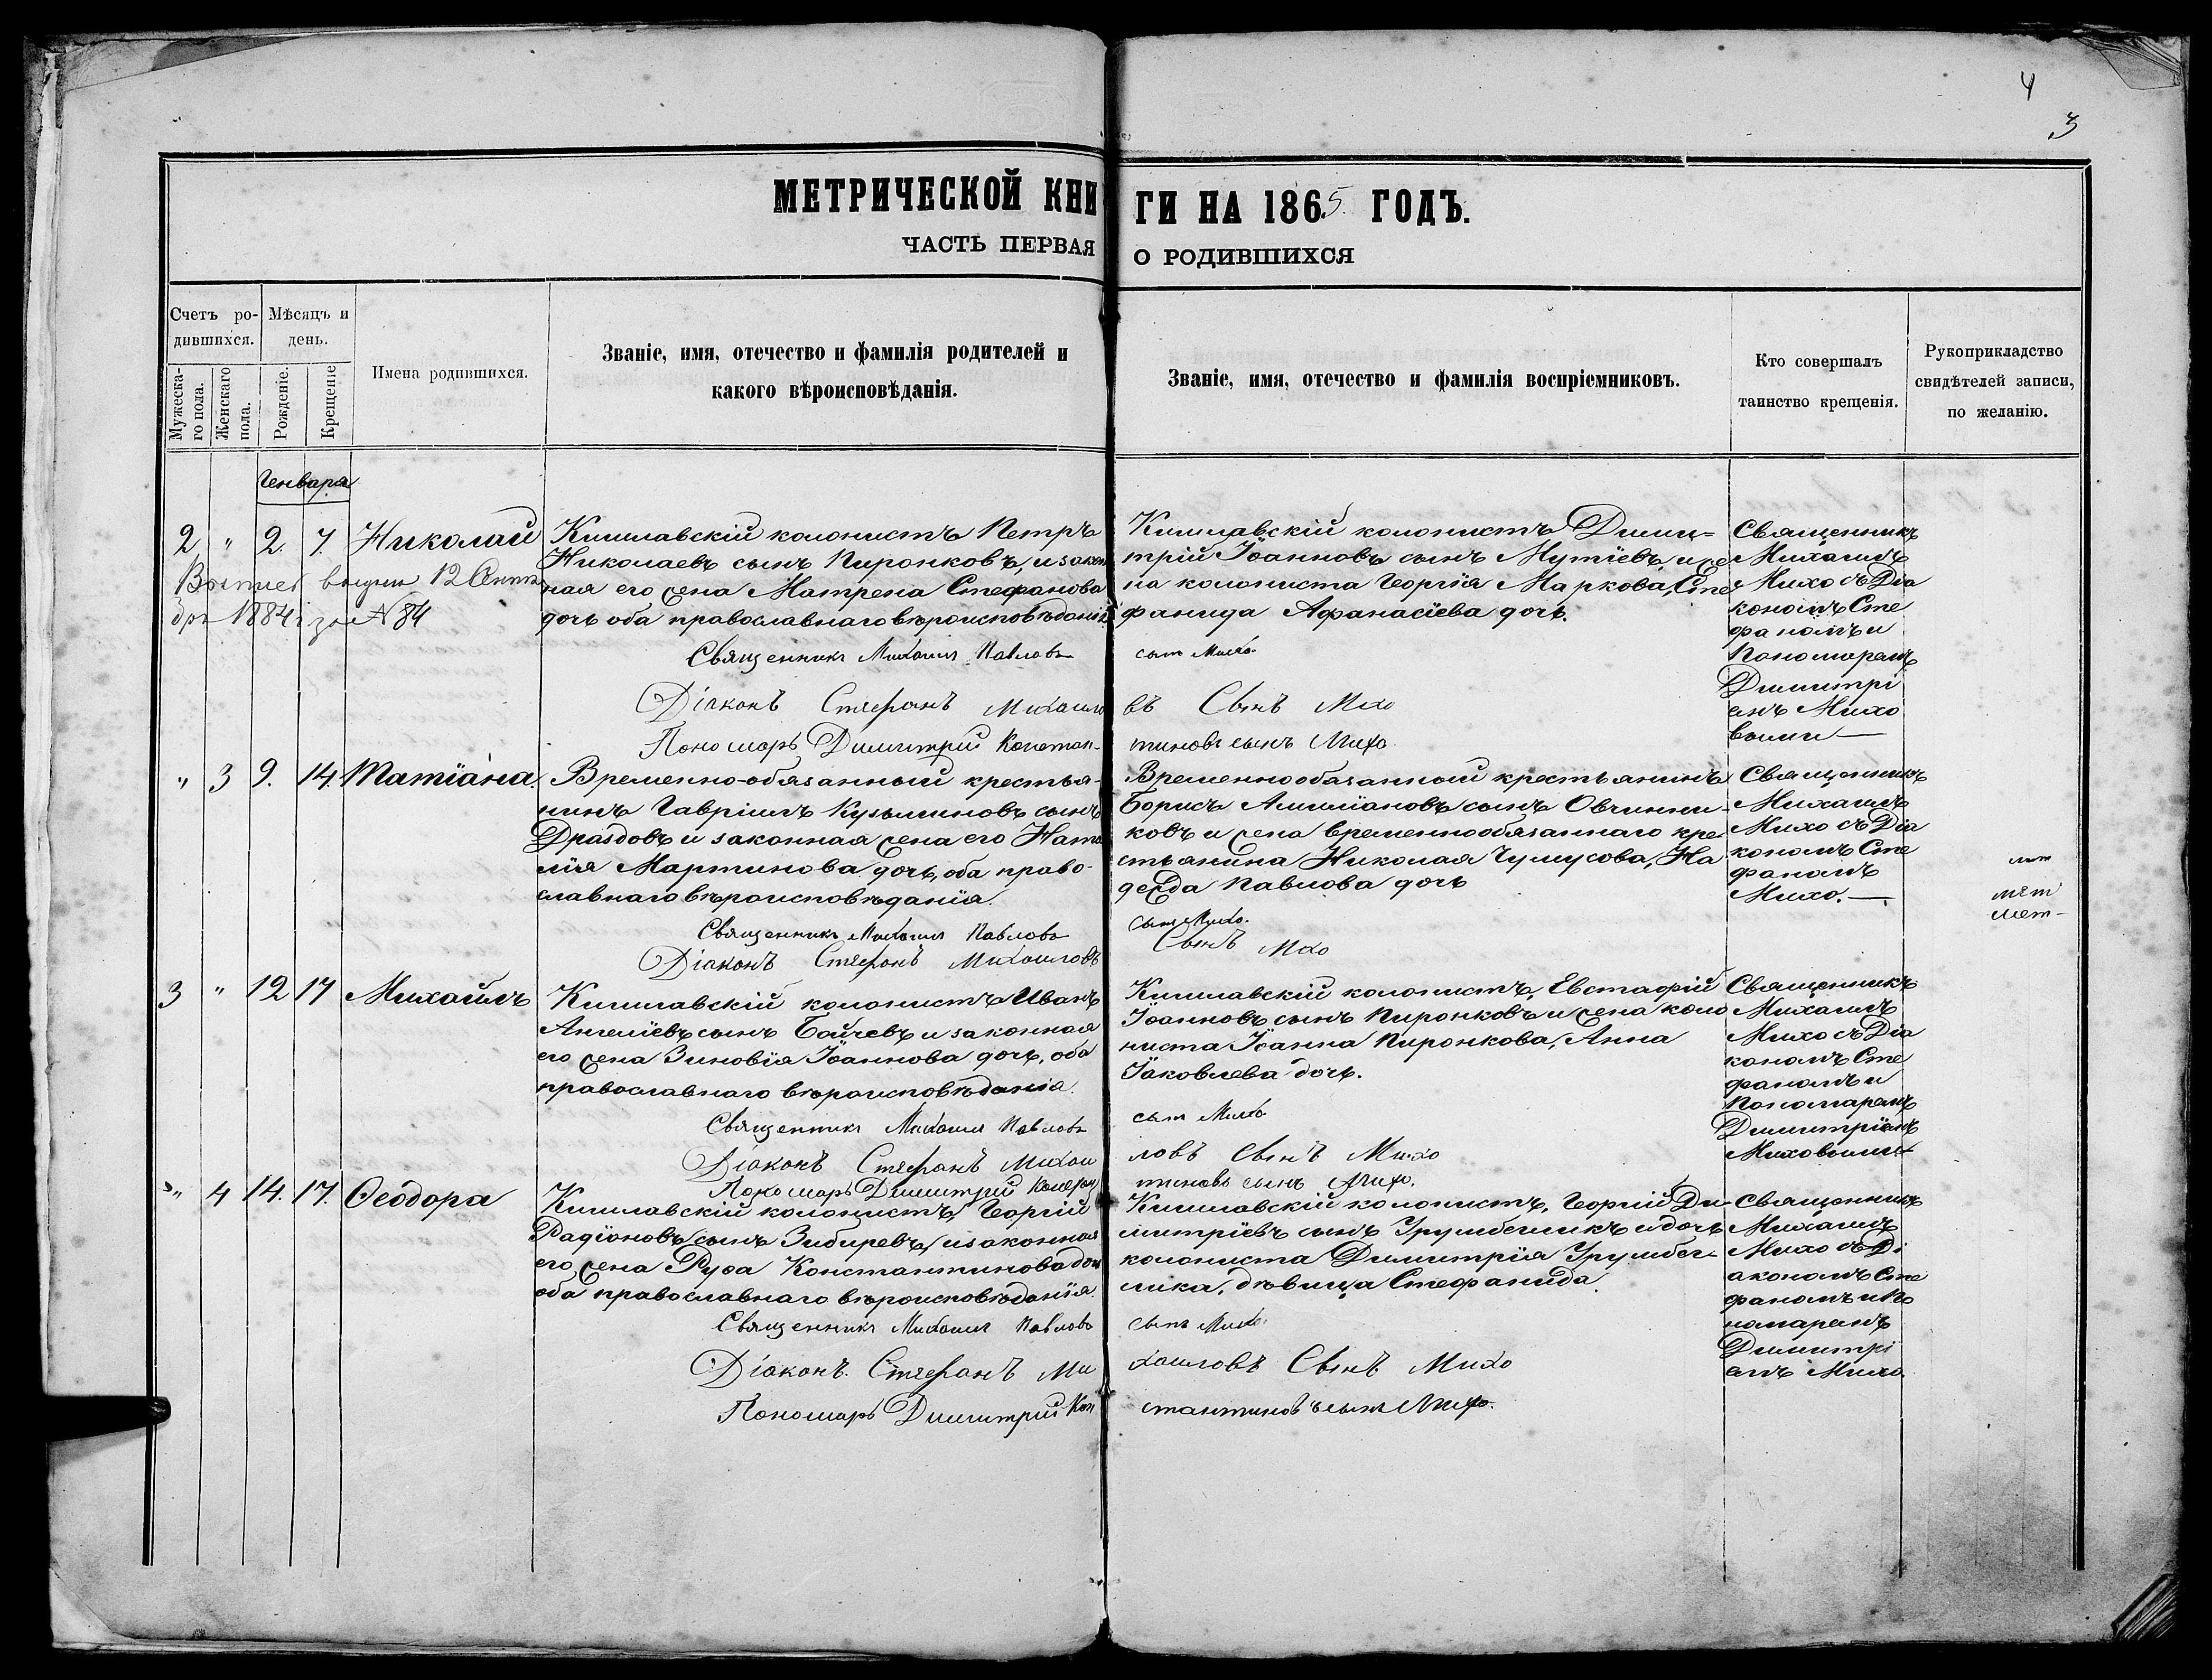 4
3
МЕТРИЧЕСКОЙ КНИ ГИ НА 1865 ГОДЪ.
ЧАСТЬ ПЕРВАЯ О РОДИВШИХСЯ
Счетъ ро-
дившихся.
Мѣсяцъ и
день.
Мужеска-
го пола.
Женскаго
пола.
Рожденіе.
Крещеніе
Имена родившихся.
Званіе, имя, отечество и фамилія родителей и
какого вѣроисповѣданія.
Званіе, имя, отечество и фамилія воспріемниковъ.
Кто совершалъ
таинство крещенія.
Рукоприкладство
свидѣтелей записи,
по желанію.
Генваря
2 " 2. 7. Николай
12
бря 1884 г за № 84
Кишлавскій колонистъ Петръ
Николаевъ сынъ Пиронковъ, и закон
ная его жена Матрена Стефанова
дочь оба православнаго вѣроисповѣданія.
Священникъ Михаилъ Павловъ
Діаконъ Стефанъ Михаило
Пономарь Димитрій Констан-
Кишлавскій колонистъ Дими-
трій Іоанновъ сынъ Мутіевъ, и же
на колониста Георгія Маркова, Сте
фанида Афанасіева дочь.
сынъ Михо.
въ Сынъ Михо
тиновъ сынъ Михо.
Священникъ
Михаилъ
Михо съ Діа
кономъ Сте
фаномъ и
Пономаремъ
Димитрі
емъ Михо
выми
" 3 9. 14. Татіана.
Временно-обязанный крестья-
нинъ Гавріилъ Кузьминовъ сынъ
Дроздовъ и законная жена его Ната
лія Мартинова дочь, оба право-
славнаго вѣроисповѣданія.
Священникъ Михаилъ Павловъ
Діаконъ Стефанъ Михаиловъ
Временнообязанный крестьянинъ
Борисъ сынъ Овчинни-
ковъ и жена временнообязаннаго кре
стьянина Николая Чумусова, На
дежда Павлова дочь
сынъ Михо.
Сынъ Михо
Священникъ
Михаилъ
Михо съ Діа
кономъ Сте
фаномъ
Михо.
3 " 12 17 Михаилъ
Кишлавскій колонистъ Иванъ
Ангеліевъ сынъ Бойчевъ и законная
его жена Зиновія Іоаннова дочь, оба
православнаго вѣроисповѣданія.
Священникъ Михаилъ Павловъ
Діаконъ Стефанъ Михаи
Пономарь Димитрій Констан
Кишлавскій колонистъ, Евстафій
Іоанновъ сынъ Пиронковъ и жена коло
ниста Іоанна Пиронкова, Анна
Іаковлева дочь.
сынъ Михо
ловъ Сынъ Михо
тиновъ сынъ Михо.
Священникъ
Михаилъ
Михо съ Діа
кономъ Сте
фаномъ и
Пономаремъ
Димитріемъ
Миховыми
" 4 14. 17. Ѳеодора
Кишлавскій колонистъ, Георгій
Радіоновъ сынъ Зибиревъ, и законная
его жена Руфа Константинова доч
оба православнаго вѣроисповѣданія.
Священникъ Михаилъ Павловъ
Діаконъ. Стефанъ Ми
Пономарь Димитрій Кон
Кишлавскій колонистъ, Георгій Ди-
митріевъ сынъ Урумбегликъ и дочь
колониста Димитрія Урумбег-
лика, дѣвица Стефанида.
сынъ Михо.
хаиловъ Сынъ Михо
стантиновъ сынъ Михо.
Священникъ
Михаилъ
Михо съ Ді
акономъ Сте
фаномъ и По
номаремъ
Димитрі
емъ Михо.